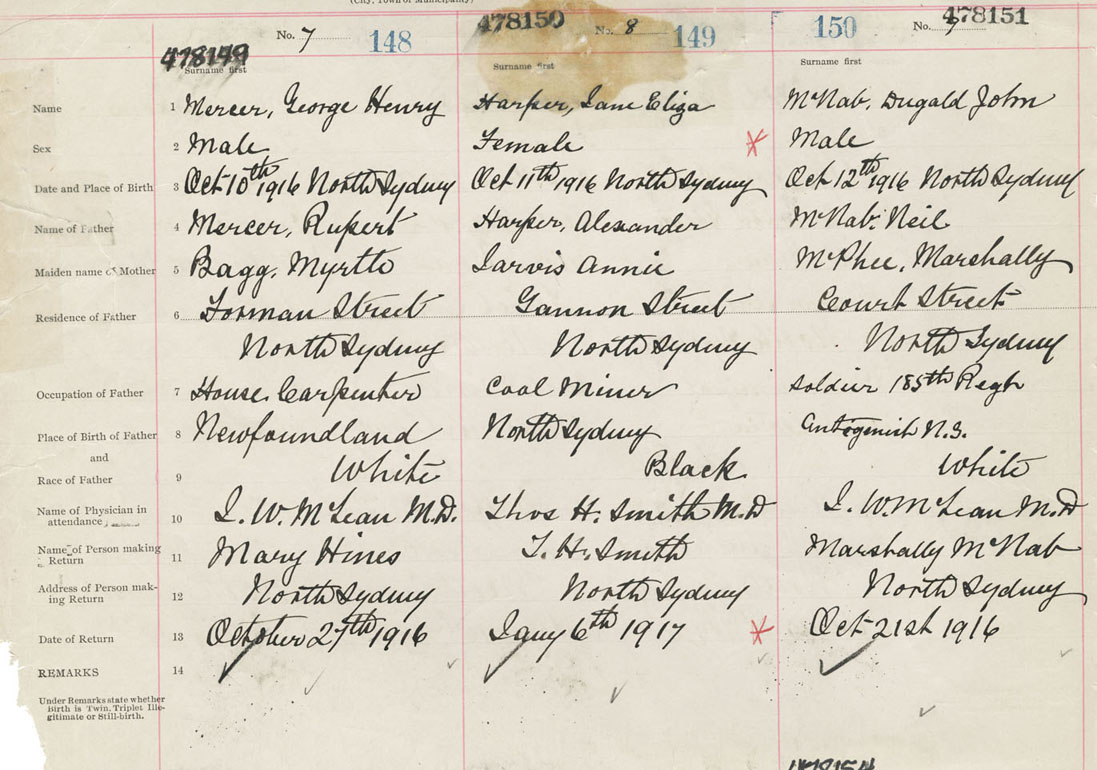 (City, Town or Municipality)
No. 7 148 478150 No. 8 149 150 No. 9 478151
478149
Surname first Surname first Surname first
Name 1 Mercer, George Henry Harper, Jane Eliza McNab, Dugald John
Sex 2 Male Female Male
Date and Place of Birth 3 Oct 10th 1916 North Sydney Oct 11th 1916 North Sydney Oct 12th 1916 North Sydney
Name of Father 4 Mercer, Rupert Harper, Alexander McNab. Neil
Maiden name of Mother 5 Bagg, Myrtle Jarvis Annie McPhee, Marshally
Residence of Father 6 Forman Street Gannon Street Court Street
North Sydney North Sydney North Sydney
Occupation of Father 7 House Carpenter Coal Miner Soldier 185th Regt
Place of Birth of Father 8 Newfoundland North Sydney Antogenish N.S.
and
Race of Father 9 White Black White
Name of Physician in
attendance 10 J. W. McLean M.D. Thos H. Smith M.D J. W. McLean M.D
Name of Person making
Return 11 Mary Hines T. H. Smith Marshally McNab
Address of Person mak-
ing Return 12 North Sydney North Sydney North Sydney
Date of Return 13 October 27th 1916 Jany 6th 1917 Oct 21st 1916
REMARKS 14
Under Remarks state whether
Birth is Twin, Triplet Ille-
gitimate or Still-birth.